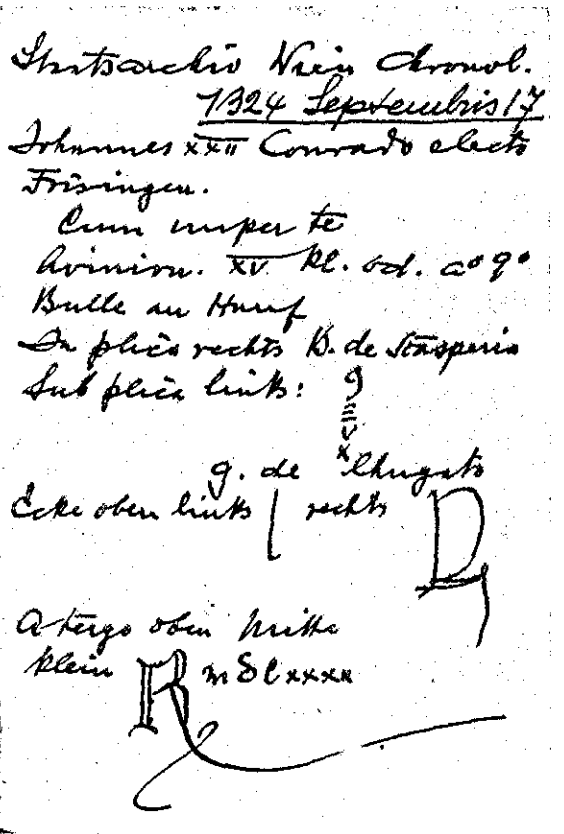 Staatsarchiv Wien Chronol.
1324 Septembris 17
Johannes XXII Conrado electo
Frisingen.
Cum nuper te
Avinion. XV kl. od. a° 9°
Bulle an Hanf
In plica rechts B. de
Sub plica links: g
XVIII
g. de
Ecke oben links | rechts
A tergo oben Mitte
klein R